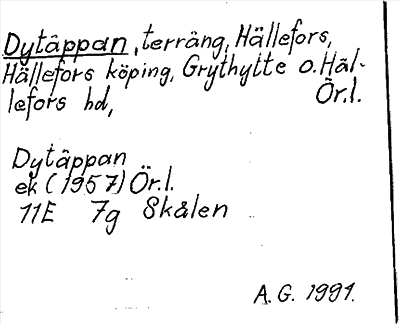 Dytäppan, terräng, Hällefors,
Hällefors köping, Grythytte o. Häl-
lefors hd, Ör.l.
Dytäppan
ek (1957) Ör.l.
11E 7g Skålen
A.G. 1991.